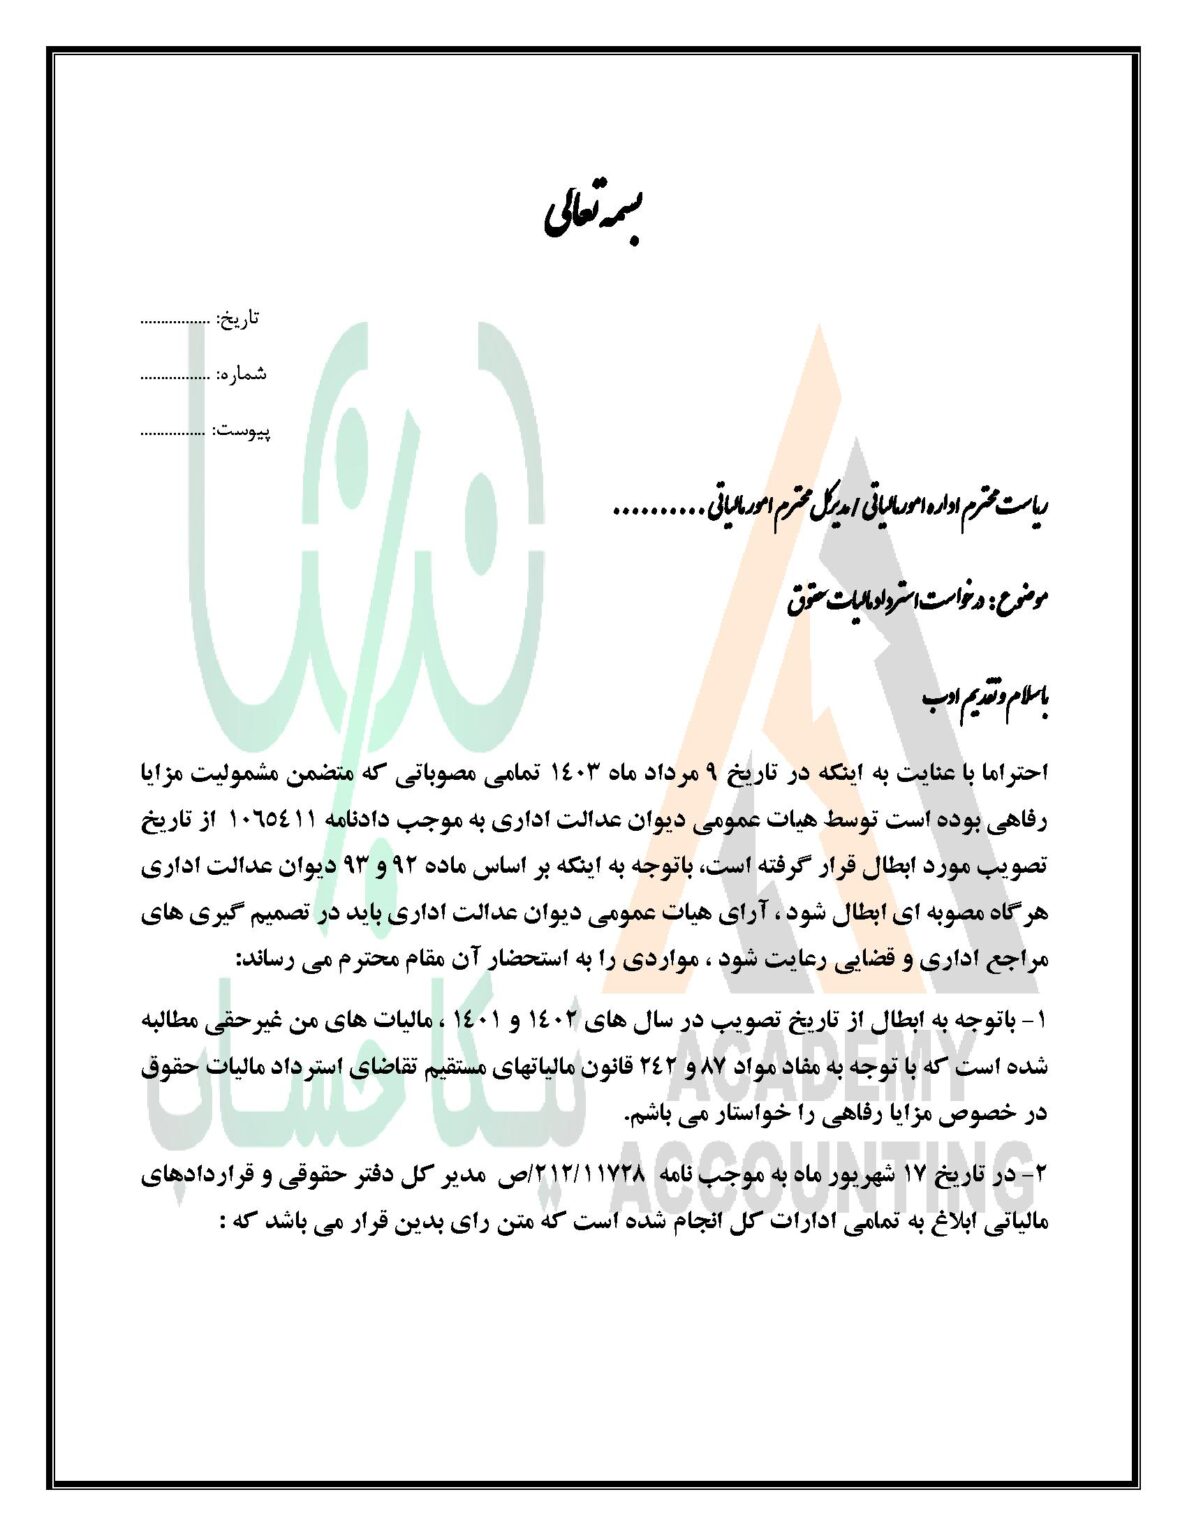 بسمه تعالی
تاریخ: .................
شماره: .................
پیوست: ................
ریاست محترم اداره امورمالیاتی / مدیرکل محترم امورمالیاتی ..........
موضوع : درخواست استرداد مالیات حقوق
باسلام و تقدیم ادب
احتراما با عنایت به اینکه در تاریخ ۹ مرداد ماه ۱۴۰۳ تمامی مصوباتی که متضمن مشمولیت مزایا
رفاهی بوده است توسط هیات عمومی دیوان عدالت اداری به موجب دادنامه ۱۰۶۵۴۱۱ از تاریخ
تصویب مورد ابطال قرار گرفته است، باتوجه به اینکه بر اساس ماده ۹۲ و ۹۳ دیوان عدالت اداری
هرگاه مصوبه ای ابطال شود ، آرای هیات عمومی دیوان عدالت اداری باید در تصمیم گیری های
مراجع اداری و قضایی رعایت شود ، مواردی را به استحضار آن مقام محترم می رساند:
۱- باتوجه به ابطال از تاریخ تصویب در سال های ۱۴۰۲ و ۱۴۰۱ ، مالیات های من غیرحقی مطالبه
شده است که با توجه به مفاد مواد ۸۷ و ۲۴۲ قانون مالیاتهای مستقیم تقاضای استرداد مالیات حقوق
در خصوص مزایا رفاهی را خواستار می باشم.
۲- در تاریخ ۱۷ شهریور ماه به موجب نامه ۲۱۲/۱۱۷۲۸/ص مدیر کل دفتر حقوقی و قراردادهای
مالیاتی ابلاغ به تمامی ادارات کل انجام شده است که متن رای بدین قرار می باشد که :
نیکا حساب
ACADEMY
ACCOUNTING